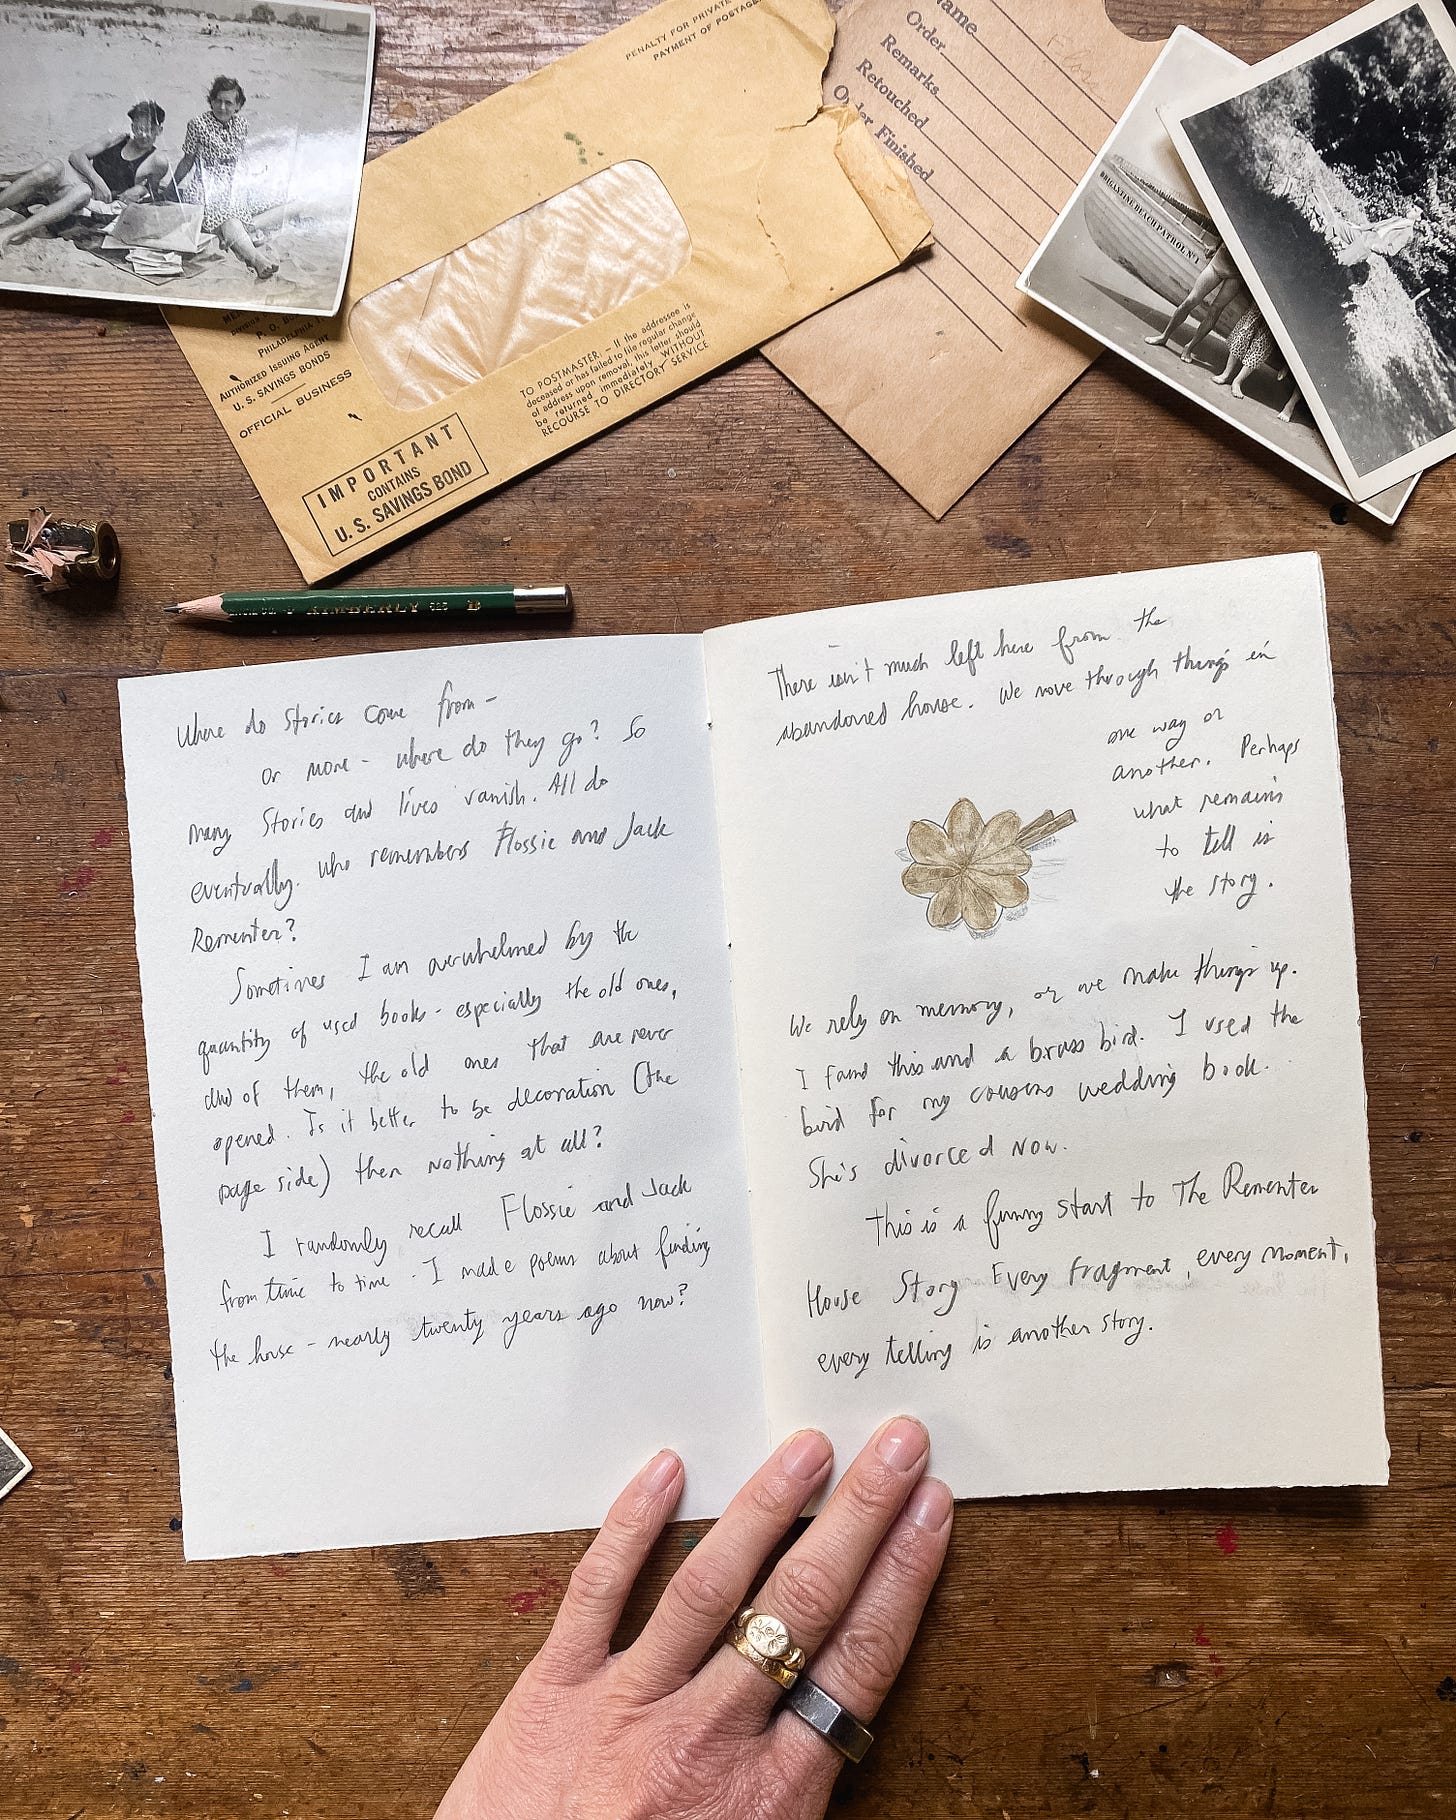 PENALTY FOR PRIVATE
PAYMENT OF POSTAGE
Name
Order
Remarks
Retouched
Order Finished
Floss
BRIGANTINE BEACH PATROL Nº 1
P. O. B
PHILADELPHIA
AUTHORIZED ISSUING AGENT
U. S. SAVINGS BONDS
OFFICIAL BUSINESS
TO POSTMASTER. – If the addressee is
deceased or has failed to file regular change
of address upon removal, this letter should
be returned immediately WITHOUT
RECOURSE TO DIRECTORY SERVICE
IMPORTANT
CONTAINS
U. S. SAVINGS BOND
KIMBERLY 525 B
Where do stories come from –
or more – where do they go? So
many stories and lives vanish. All do
eventually. Who remembers Flossie and Jack
Rementer?
Sometimes I am overwhelmed by the
quantity of used books – especially the old ones,
all of them, the old ones that are never
opened. Is it better to be decoration (the
page side) then nothing at all?
I randomly recall Flossie and Jack
from time to time. I made poems about finding
the house – nearly twenty years ago now?
There isn't much left here from the
abandoned house. We move through things in
one way or
another. Perhaps
what remains
to tell is
the story.
We rely on memory, or we make things up.
I found this and a brass bird. I used the
bird for my cousins wedding book.
She's divorced now.
This is a funny start to The Rementer
House Story Every fragment, every moment,
every telling is another story.